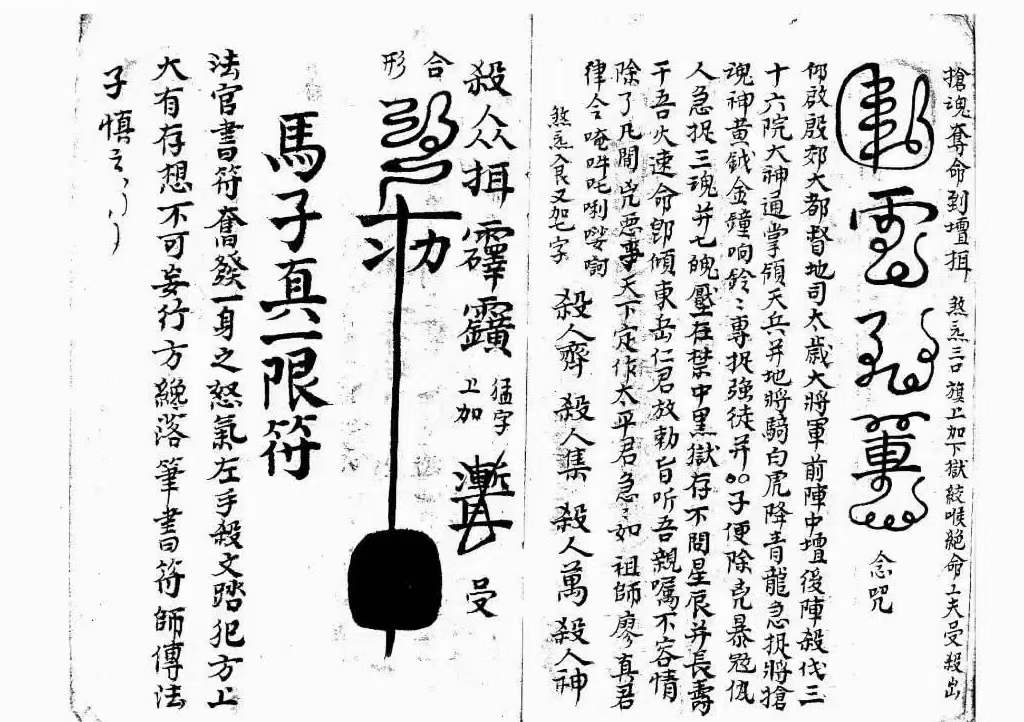 搶魂奪命到壇揖　煞炁三口　旗上加下獄絞喉絕命工夫曼殺出
念咒
仰啟殷郊大都督地司太歲大將軍前陣中壇後陣殺伐三
十六院大神通掌領天兵并地將騎白虎降青龍急捉將搶
魂神黃鉞金鐘响鈴〻專捉強徒并〇〇子便除兇暴冤仇
人急捉三魂并七魄壓在禁中黑獄存不問星辰并長壽
干吾火速命即傾東岳仁君放勅旨听吾親囑不容情
除了凡間兇惡事天下定作太平君急〻如祖師廖真君
律令唵吽吒唎㗲訶
煞炁食又加七字
殺人齊　殺人集　殺人萬　殺人神
殺人众揖　霹　猛字上加　曼
合形
馬子真一限符
法官書符奮發一身之怒氣左手殺文踏犯方上
大有存想不可妄行方纔落筆書符師傳法
子慎之〻〻